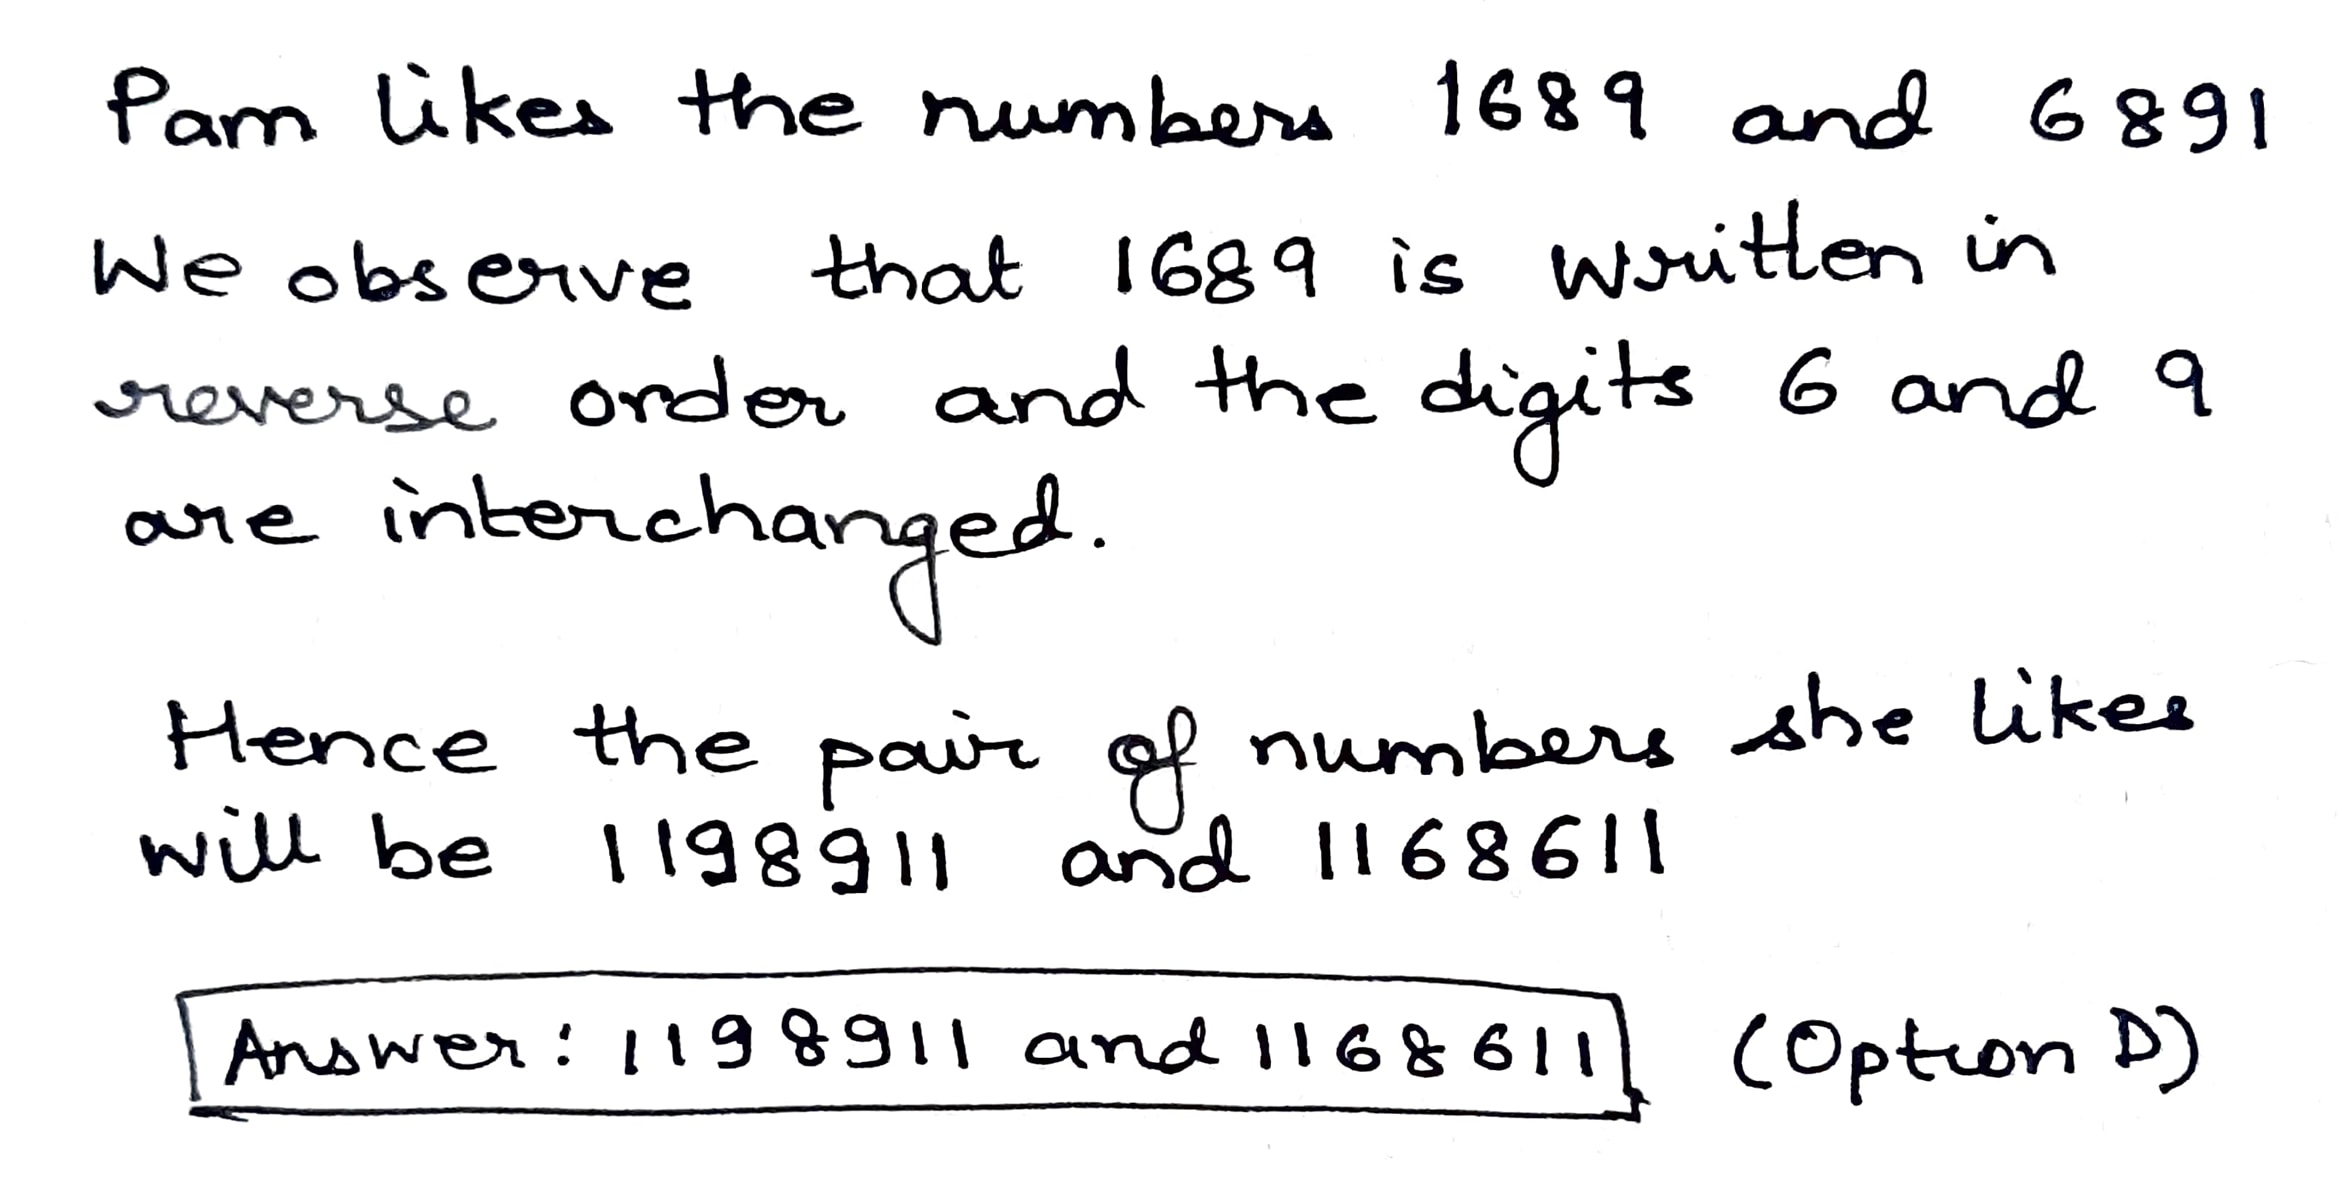 Pam likes the numbers 1689 and 6891
We observe that 1689 is written in
reverse order and the digits 6 and 9
are interchanged.
Hence the pair of numbers she likes
will be 1198911 and 1168611
Answer: 1198911 and 1168611 (Option D)